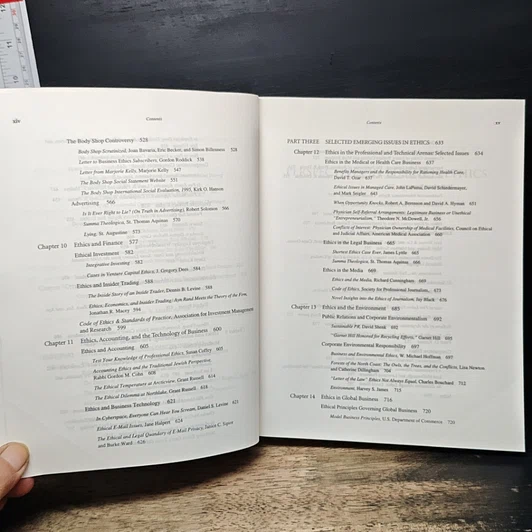 xiv Contents
The Body Shop Controversy 528
Body Shop Scrutinized, Joan Bavaria, Eric Becker, and Simon Billenness 528
Letter to Business Ethics Subscribers, Gordon Roddick 538
Letter from Marjorie Kelly, Marjorie Kelly 547
The Body Shop Social Statement Website 551
The Body Shop International Social Evaluation, 1995, Kirk O. Hanson
Advertising 566
Is It Ever Right to Lie? (On Truth in Advertising), Robert Solomon 566
Summa Theologica, St. Thomas Aquinas 570
Lying, St. Augustine 575
Chapter 10 Ethics and Finance 577
Ethical Investment 582
Integrative Investing 582
Cases in Venture Capital Ethics, J. Gregory Dees 584
Ethics and Insider Trading 588
The Inside Story of an Inside Trader, Dennis B. Levine 588
Ethics, Economics, and Insider Trading: Ayn Rand Meets the Theory of the Firm,
Jonathan R. Macey 594
Code of Ethics & Standards of Practice, Association for Investment Management
and Research 599
Chapter 11 Ethics, Accounting, and the Technology of Business 600
Ethics and Accounting 605
Test Your Knowledge of Professional Ethics, Susan Coffey 605
Accounting Ethics and the Traditional Jewish Perspective,
Rabbi Gordon M. Cohn 608
The Ethical Temperature at Arcticview, Grant Russell 614
The Ethical Dilemma at Northlake, Grant Russell 618
Ethics and Business Technology 621
In Cyberspace, Everyone Can Hear You Scream, Daniel S. Levine 621
Ethical E-Mail Issues, Jane Halpert 624
The Ethical and Legal Quandary of E-Mail Privacy, Janice C. Sipior
and Burke Ward 626
Contents xv
PART THREE SELECTED EMERGING ISSUES IN ETHICS 633
Chapter 12 Ethics in the Professional and Technical Arenas: Selected Issues 634
Ethics in the Medical or Health Care Business 637
Benefits Managers and the Responsibility for Rationing Health Care,
David T. Ozar 637
Ethical Issues in Managed Care, John LaPuma, David Schiedermayer,
and Mark Siegler 645
When Opportunity Knocks, Robert A. Berenson and David A. Hyman 651
Physician Self-Referral Arrangements: Legitimate Business or Unethical
"Entrepreneurialism," Theodore N. McDowell, Jr. 656
Conflicts of Interest: Physician Ownership of Medical Facilities, Council on Ethical
and Judicial Affairs, American Medical Association 660
Ethics in the Legal Business 665
Hurriest Ethics Case Ever, James Lyons 665
Summa Theologica, St. Thomas Aquinas 668
Ethics in the Media 669
Ethics and the Media, Richard Cunningham 669
Code of Ethics, Society for Professional Journalists 675
Novel Insights into the Ethics of Journalism, Jay Black 676
Chapter 13 Ethics and the Environment 685
Public Relations and Corporate Environmentalism 692
Sustainable PR, David Shenk 692
"Garnet Hill Honored for Recycling Efforts," Garnet Hill 695
Corporate Environmental Responsibility 697
Business and Environmental Ethics, W. Michael Hoffman 697
Paradox of the North Coast: The Owls, the Trees, and the Conflicts, Lisa Newton
and Catherine Dillingham 704
"Letter of the Law" Ethics Not Always Equal, Charles Bouchard 712
Environment, Harvey S. James 715
Chapter 14 Ethics in Global Business 716
Ethical Principles Governing Global Business 720
Model Business Principles, U.S. Department of Commerce 720